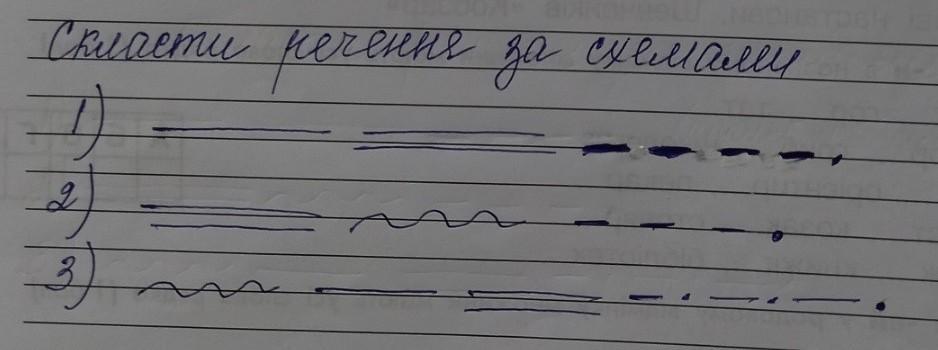 Скласти речення за схемами
1)
2)
3)